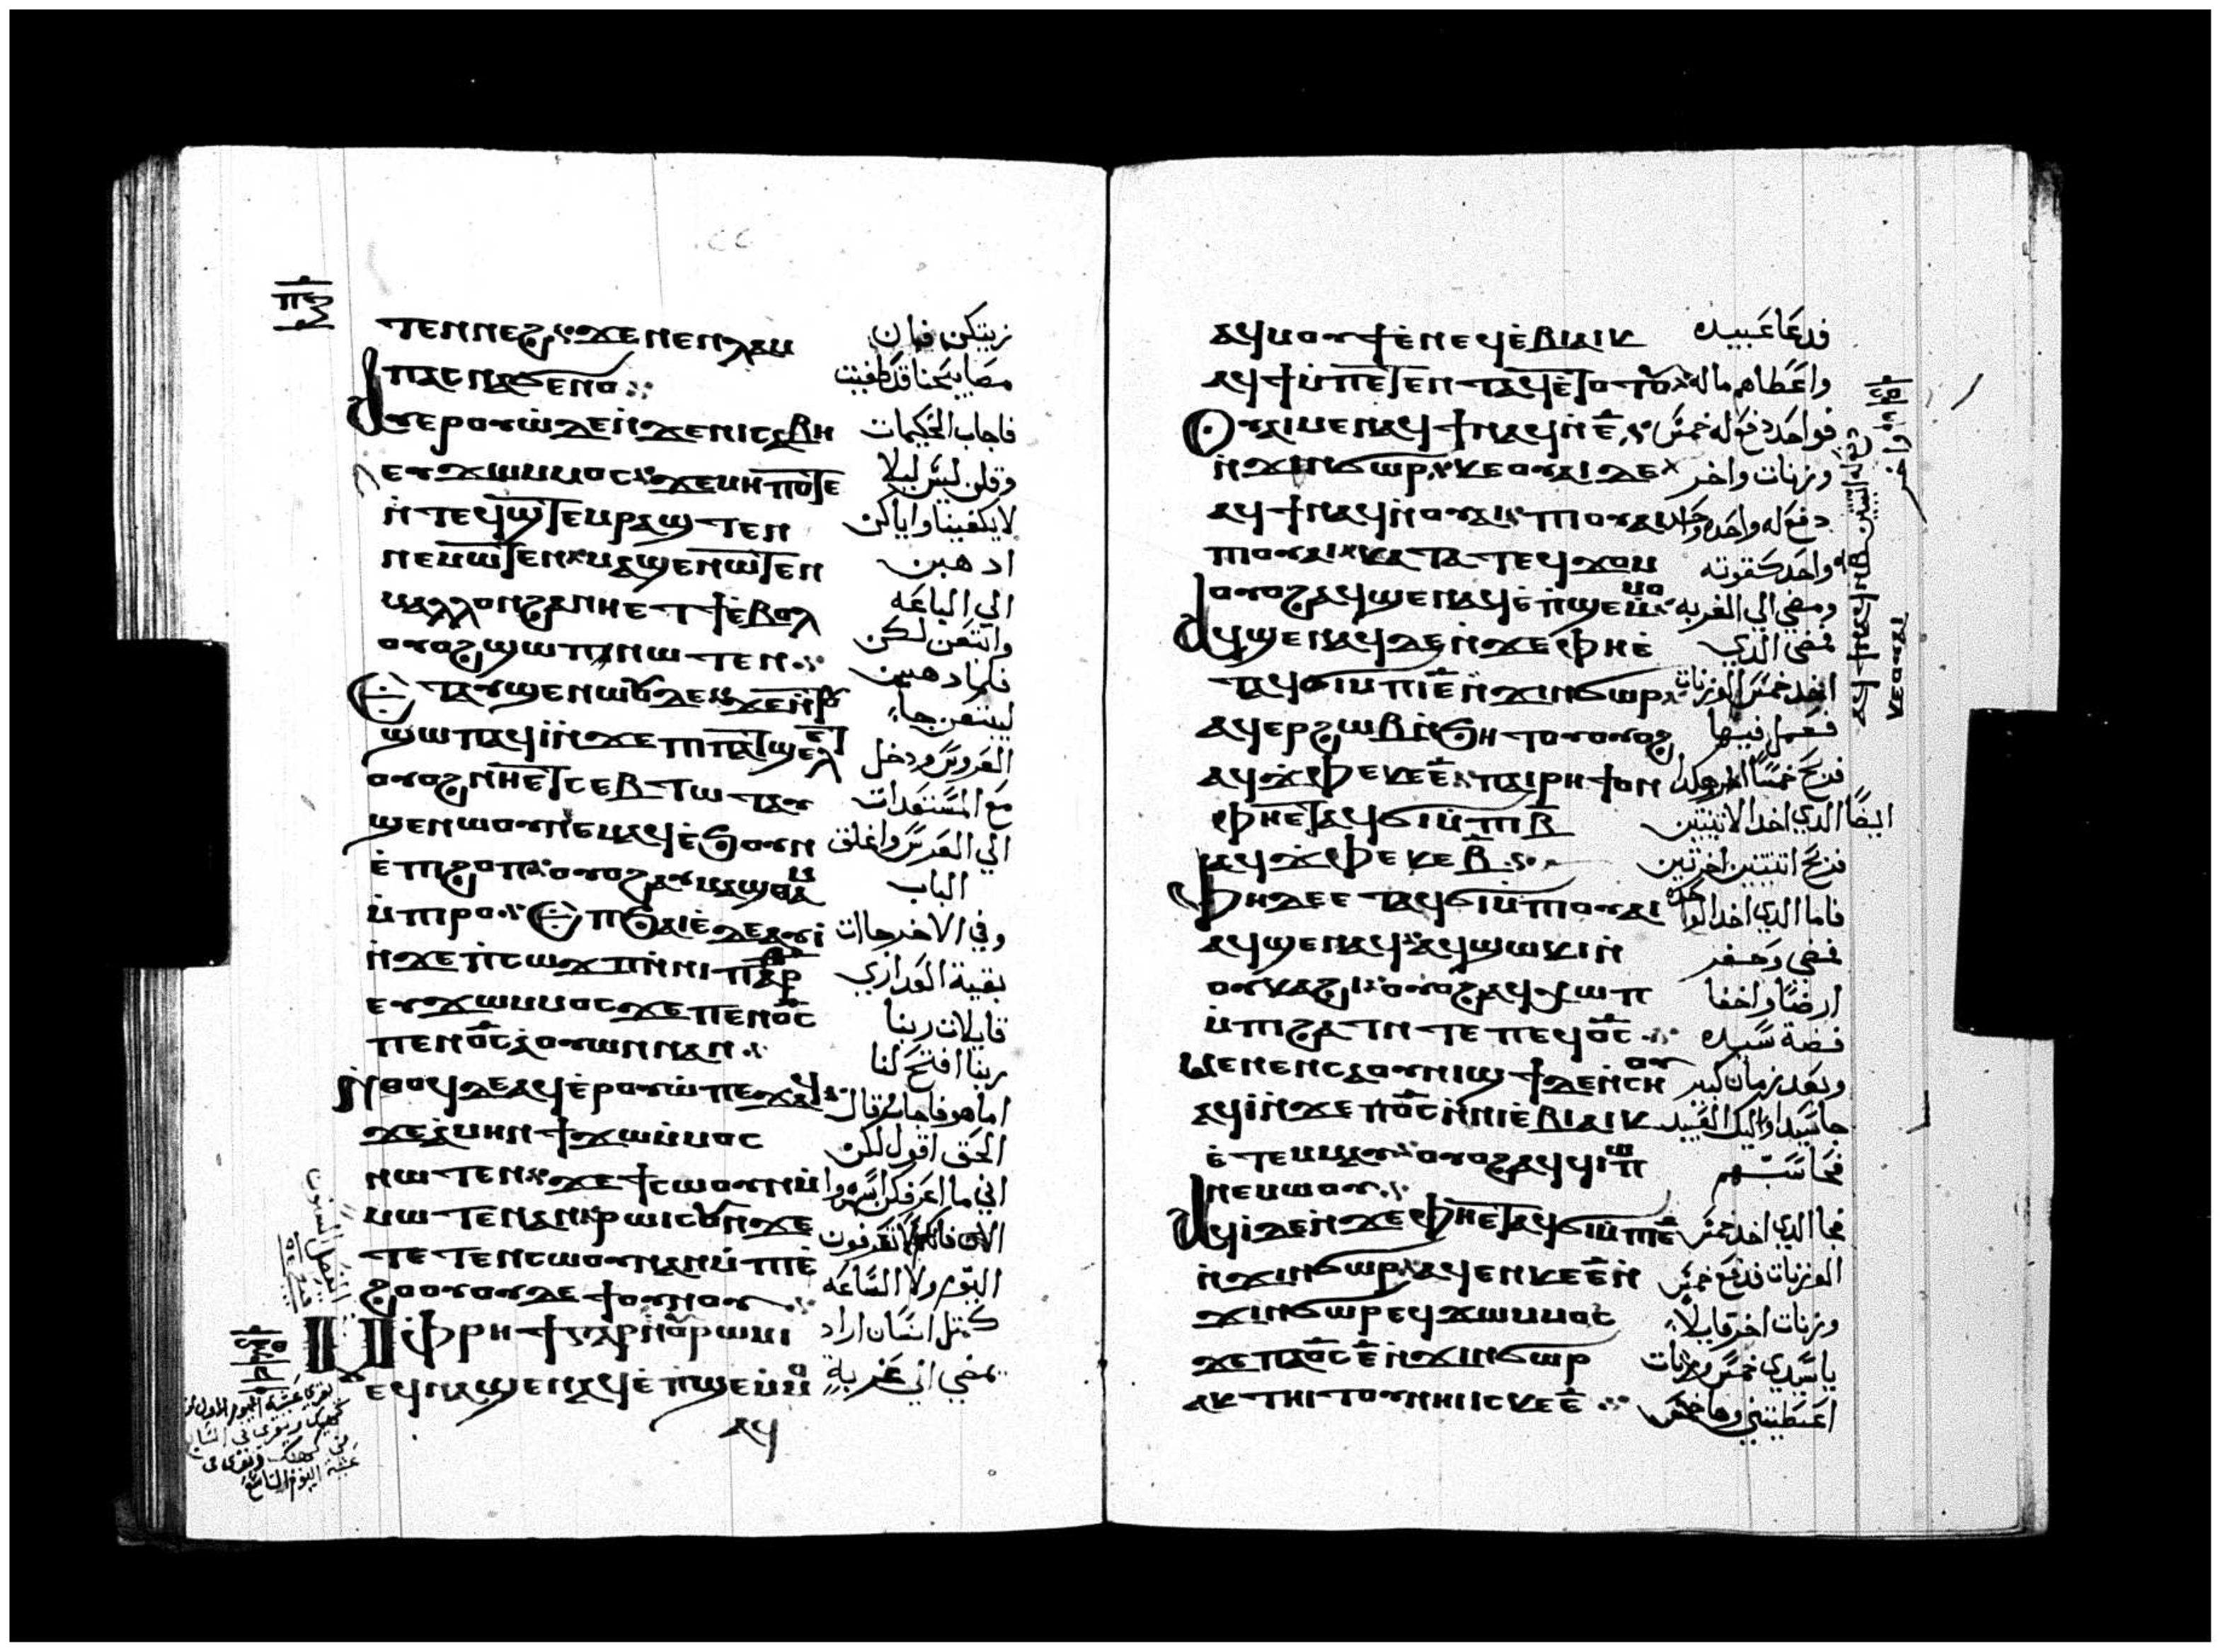 ⲧⲉⲛⲛⲉϩ ϫⲉ ⲛⲉⲛⲗⲁⲙ
ⲡⲁⲥ ⲛⲁϭⲉⲛⲟ
ⲁⲩⲉⲣⲟⲩⲱ̀ ⲇⲉ ⲛ̀ϫⲉ ⲛⲓⲥⲁⲃⲏ
ⲉⲩϫⲱ ⲙⲙⲟⲥ ϫⲉ ⲙⲏⲡⲟⲧⲉ
ⲛ̀ⲧⲉϥϣⲧⲉⲙⲣⲁϣⲧⲉⲛ
ⲛⲉⲙⲱⲧⲉⲛ ⲙⲁϣⲉⲛⲱⲧⲉⲛ
ⲙⲁⲗⲗⲟⲛ ϩⲁ ⲛⲏⲉⲧϯ ⲉ̀ⲃⲟⲗ
ⲟⲩⲟϩ ϣⲱⲡ ⲛⲱⲧⲉⲛ
ⲉⲧⲁⲩϣⲉⲛⲱⲟⲩ ⲇⲉ
ϣⲱⲡ ⲁϥⲓ̀ ⲛ̀ϫⲉ ⲡⲓⲡⲁⲧϣⲉⲗⲉⲧ
ⲟⲩⲟϩ ⲛⲏⲉⲧⲥⲉⲃⲧⲱⲧ ⲁⲩ
ϣⲉⲛⲱⲟⲩ ⲛⲉⲙⲁϥ ⲉ̀ϧⲟⲩⲛ
ⲉ̀ⲡⲓϩⲟⲡ ⲟⲩⲟϩ ⲁⲩⲙⲁϣⲑⲁⲙ
ⲙ̀ⲡⲓⲣⲟ ⲉⲡϧⲁⲉ̀ ⲇⲉ ⲁⲩⲓ̀
ⲛ̀ϫⲉ ⲡ̀ⲥⲱϫⲡ ⲛ̀ⲛⲓⲡⲁⲣ
ⲉⲩϫⲱ ⲙⲙⲟⲥ ϫⲉ ⲡⲉⲛⲟ̅ⲥ̅
ⲡⲉⲛⲟ̅ⲥ̅ ⲁ̀ⲟⲩⲱⲛ ⲛⲁⲛ
ⲛ̀ⲑⲟϥ ⲇⲉ ⲁϥⲉ̀ⲣⲟⲩⲱ̀ ⲡⲉϫⲁϥ
ϫⲉ ⲁ̀ⲙⲏⲛ ϯϫⲱ ⲙ̀ⲙⲟⲥ
ⲛⲱⲧⲉⲛ ϫⲉ ϯⲥⲱⲟⲩⲛ ⲙ̀
ⲙⲱⲧⲉⲛ ⲁⲛ ⲣⲱⲓⲥ ⲟⲩⲛ ϫⲉ
ⲧⲉⲧⲉⲛⲥⲱⲟⲩⲛ ⲁⲛ ⲙ̀ⲡⲓⲉ̀
ϩⲟⲟⲩ ⲟⲩⲇⲉ ϯⲟⲩⲛⲟⲩ
ⲙ̀ⲫⲣⲏϯ ⲅⲁⲣ ⲛ̀ⲟⲩⲣⲱⲙⲓ
ⲉϥⲛⲁϣⲉⲛⲁϥ ⲉ̀ⲡ̀ϣⲉⲙ̀ⲙⲟ
ⲁϥ
زيتكن فان
مصابيحنا قد طفيت
فاجاب الحكيمات
وقلن ليس ليلا
لا يكفينا واياكن
اذهبن
الي الباعه
وابتعن لكن
فلما ذهبن
ليبتعن جاء
العروس ودخل
مع المستعدات
الي العرس واغلق
الباب
وفي الاخر جاات
بقية العداري
قايلات ربنا
ربنا افتح لنا
اما هو فاجاب وقال
الحق اقول لكن
اني ما اعرفكن اسهروا
الان فانكم لا تعرفون
اليوم ولا الساعه
كمثل انسان اراد
يمضي الي غربة
ⲁϥⲙⲟⲩϯ ⲉ̀ⲛⲉϥⲉ̀ⲃⲓⲁⲓⲕ
ⲁϥϯ ⲙ̀ⲡⲉⲧⲉⲛⲧⲁϥ ⲉ̀ⲧⲟⲧⲟⲩ
ⲟⲩⲁⲓ ⲙⲉⲛ ⲁϥϯ ⲛⲁϥ ⲛ̀ⲉ̅
ⲛ̀ϫⲓⲛϭⲱⲣ ⲕⲉⲟⲩⲁⲓ ⲇⲉ
ⲁϥϯ ⲛⲁϥ ⲛ̀ⲟⲩⲁⲓ ⲡⲓⲟⲩⲁⲓ
ⲡⲓⲟⲩⲁⲓ ⲕⲁⲧⲁ ⲧⲉϥϫⲟⲙ
ⲟⲩⲟϩ ⲁϥϣⲉⲛⲁϥ ⲉ̀ⲡ̀ϣⲉⲙⲙⲟ
ⲁϥϣⲉⲛⲁϥ ⲇⲉ ⲛ̀ϫⲉ ⲫⲏⲉ̀
ⲧⲁϥϭⲓ ⲙⲡⲓⲉ̅ ⲛ̀ϫⲓⲛϭⲱⲣ
ⲁϥⲉⲣϩⲱⲃ ⲛ̀ϧⲏⲧⲟⲩ ⲟⲩⲟϩ
ⲁϥϫ̀ⲫⲉ ⲕⲉⲉ̅ ⲡⲁⲓⲣⲏϯ ⲟⲛ
ⲫⲏⲉⲧⲁϥϭⲓ ⲙ̀ⲡⲓⲃ̅
ⲁϥϫ̀ⲫⲉ ⲕⲉⲃ̅
ⲫⲏ ⲇⲉ ⲉⲧⲁϥϭⲓ ⲙ̀ⲡⲓⲟⲩⲁⲓ
ⲁϥϣⲉⲛⲁϥ ⲁϥϣⲱⲕⲓ ⲛ̀
ⲟⲩⲕⲁϩⲓ ⲟⲩⲟϩ ⲁϥⲭⲱⲡ
ⲙ̀ⲡⲓϩⲁⲧ ⲛⲧⲉ ⲡⲉϥⲟ̅ⲥ̅
ⲙⲉⲛⲉⲛⲥⲁ ⲟⲩⲛⲓϣϯ ⲇⲉ ⲛ̀ⲥⲏⲟⲩ
ⲁϥⲓ̀ ⲛ̀ϫⲉ ⲡⲟ̅ⲥ̅ ⲛ̀ⲛⲓⲉ̀ⲃⲓⲁⲓⲕ
ⲉ̀ⲧⲉⲙⲙⲁⲩ ⲟⲩⲟϩ ⲁϥϥⲓⲱⲡ
ⲛⲉⲙⲱⲟⲩ
ⲁϥⲓ̀ ⲇⲉ ⲛ̀ϫⲉ ⲫⲏⲉⲧⲁϥϭⲓ ⲙ̀ⲡⲓⲉ̅
ⲛ̀ϫⲓⲛϭⲱⲣ ⲁϥⲉⲛ ⲕⲉⲉ̅ ⲛ̀
ϫⲓⲛϭⲱⲣ ⲉϥϫⲱ ⲙⲙⲟⲥ
ϫⲉ ⲡⲁⲟ̅ⲥ̅ ⲉ̅ ⲛ̀ϫⲓⲛϭⲱⲣ
ⲁⲕⲧⲏⲓⲧⲟⲩ ⲛⲏⲓ ⲓⲥ ⲕⲉⲉ̅
فدعا عبيده
واعطاهم ماله
فواحد دفع له خمس
وزنات واخر
دفع له واحده
واحد كقوته
ومضي الي الغربه
فمضي الذي
اخد خمس الوزنات
فعمل فيها
فربح خمسا اخر وهكدا
ايضا الدي اخد الاثنتين
فربح اثنتين اخرتين
فاما الدي اخد الواحده
فمضي وحفر
ارضا واخفا
فضة سيده
وبعد زمان كبير
جا سيد اوليك العبيد
فحاسبهم
فجا الدي اخد خمس
الوزنات فدفع خمس
وزنات اخر قايلا
يا سيدي خمس وزنات
اعطيتني وها خمس
ⲕⲉⲟⲩⲁⲓ
ⲁϥϯ ⲛⲁϥ ⲛ̀ⲃ̅
دفع له اثنتين
واخر